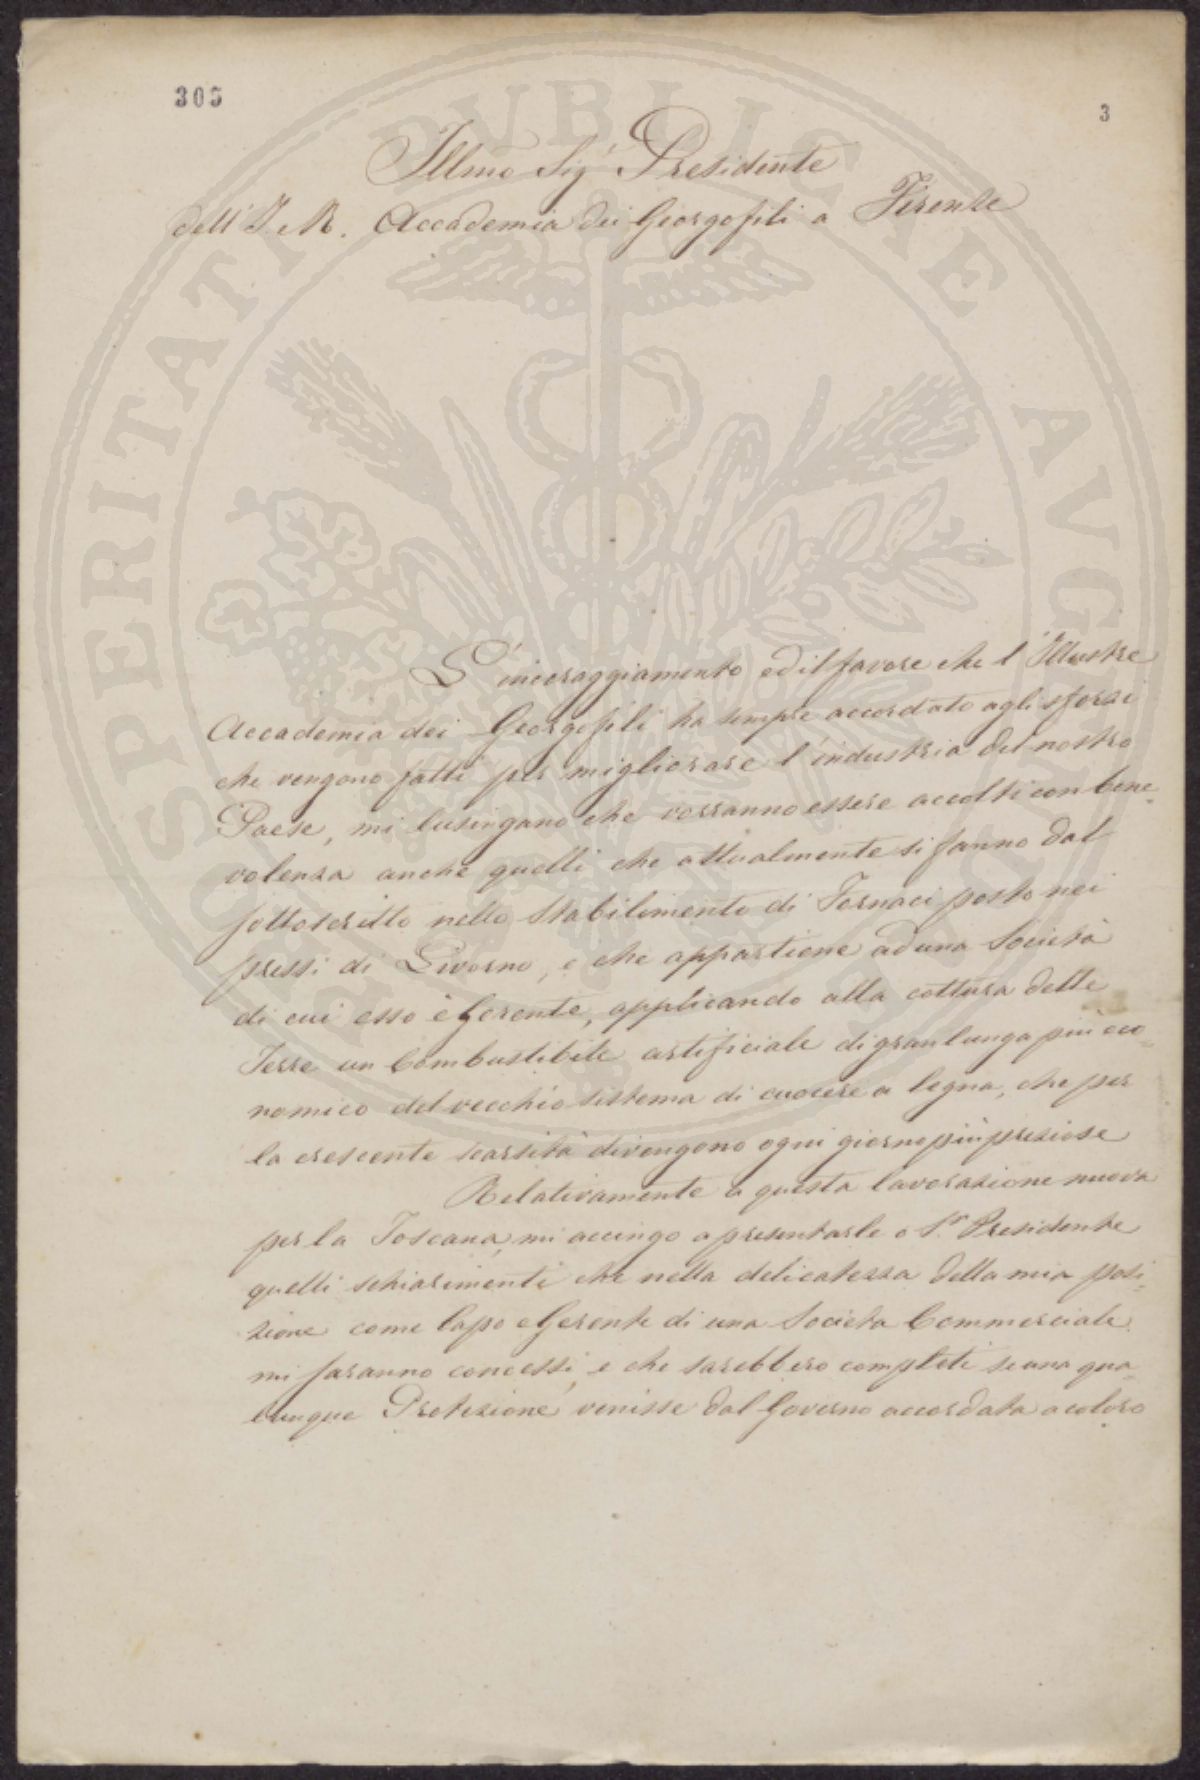 305
3
Illmo Sigr Presidente
dell' I. e R. Accademia dei Georgofili a Firenze
L' incoraggiamento ed il favore che l' Illustre
Accademia dei Georgofili ha sempre accordato agli sforzi
che vengono fatti per migliorare l' industria del nostro
Paese, mi lusingano che vorranno essere accolti con bene-
volenza anche quelli che attualmente si fanno dal
sottoscritto nello Stabilimento di Fornaci posto nei
pressi di Livorno, e che appartiene ad una Società
di cui esso è Gerente, applicando alla cottura delle
Terre un Combustibile artificiale di gran lunga più eco-
nomico del vecchio sistema di cuocere a legna, che per
la crescente scarsità divengono ogni giorno più preziose
Relativamente a questa lavorazione nuova
per la Toscana, mi accingo a presentarle o Sr. Presidente
quelli schiarimenti che nella delicatezza della mia posi-
zione come Capo e Gerente di una Società Commerciale
mi saranno concessi, e che sarebbero completi se una qua-
lunque Protezione venisse dal Governo accordata a coloro
PROSPERITATI PVBLICAE AVGENDAE